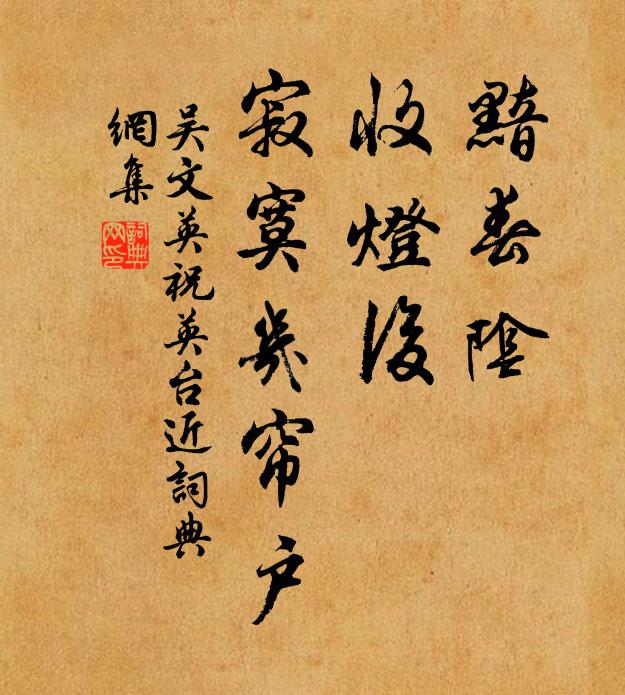 黯春陰
收燈後
寂寞幾帘户
吴文英祝英台近詞典
網集
詞典
网印